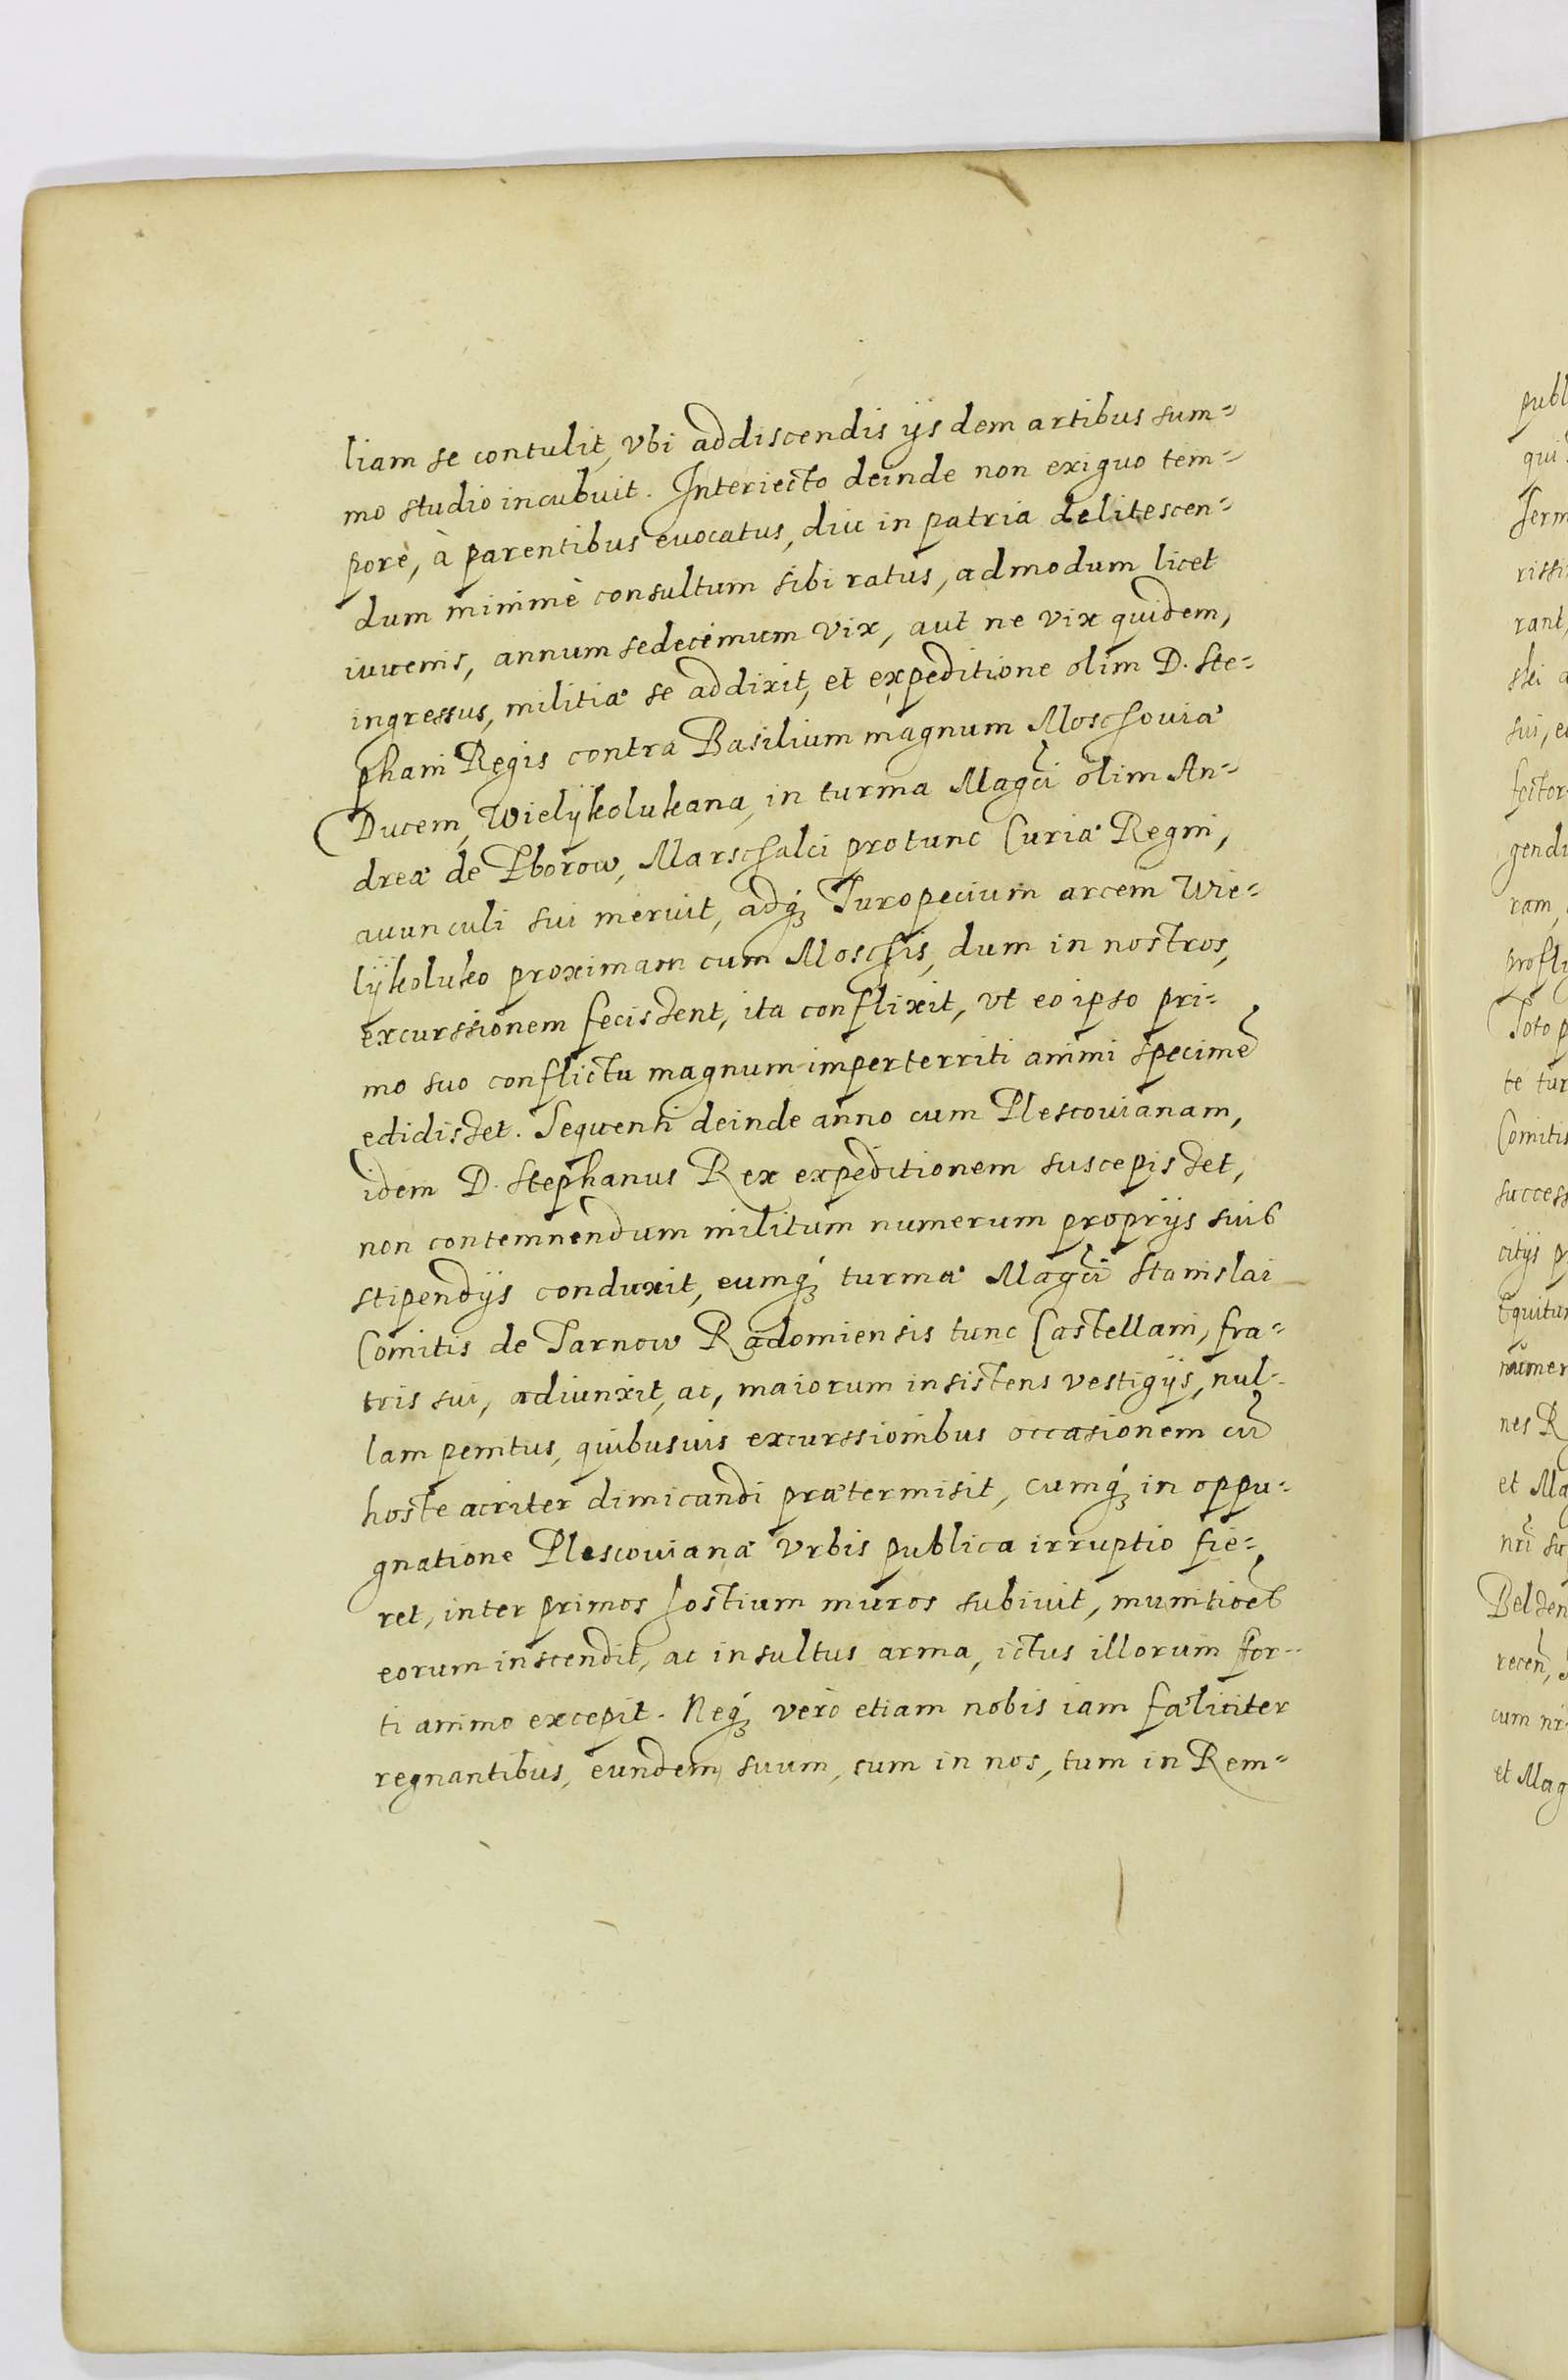 liam se contulit, vbi addiscendis ijsdem artibus sum=
mo studio incubuit. Interiecto deinde non exiguo tem=
pore, à parentibus euocatus, diu in patria delitescen=
dum minimè consultum sibi ratus, admodum licet
iuuenis, annum sedecimum vix, aut ne vix quidem,
ingressus, militiæ se addixit, et expeditione olim D. Ste=
phani Regis contra Basilium magnum Moschouiæ
Ducem, Wielijkolukana, in turma Magci olim An=
dreæ de Zborow, Marschalci protunc Curiæ Regni,
auunculi sui meruit, adq₃ Turopecium arcem Wie=
lijkoluko proximam cum Moschis, dum in nostros,
excurssionem fecissent, ita conflixit, vt eo ipso pri=
mo suo conflictu magnum imperterriti animi specimē
edidisset. Sequenti deinde anno cum Plescouianam,
idem D. Stephanus Rex expeditionem suscepisset,
non contemnendum militum numerum proprijs suis
stipendijs conduxit, eumq₃ turmæ Magci Stanislai
Comitis de Tarnow Radomiensis tunc Castellani, fra=
tris sui, adiunxit, ac, maiorum insistens vestigijs, nul-
lam penitus, quibusuis excurssionibus occasionem cū
hoste acriter dimicandi prætermisit, cumq₃ in oppu=
gnatione Plescouianæ Vrbis publica irruptio fie=
ret, inter primos hostium muros subiuit, munitiōēs
eorum inscendit, ac insultus arma, ictus illorum for=
ti animo excepit. Neq₃ verò etiam nobis iam fæliciter
regnantibus, eundem suum, cum in nos, tum in Rem=
publ
qui
serm
rissi
rant,
sui, e
fector
gendi
ram,
profli
Toto p
te tur
Comitis
success
citijs p
Equitum
numer
nes R
et Ma
Belden
recen
cum nr
et Mag